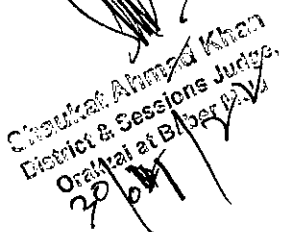 Shaukat Ahmad Khan
District & Sessions Judge,
Orakzai at Baber Mela